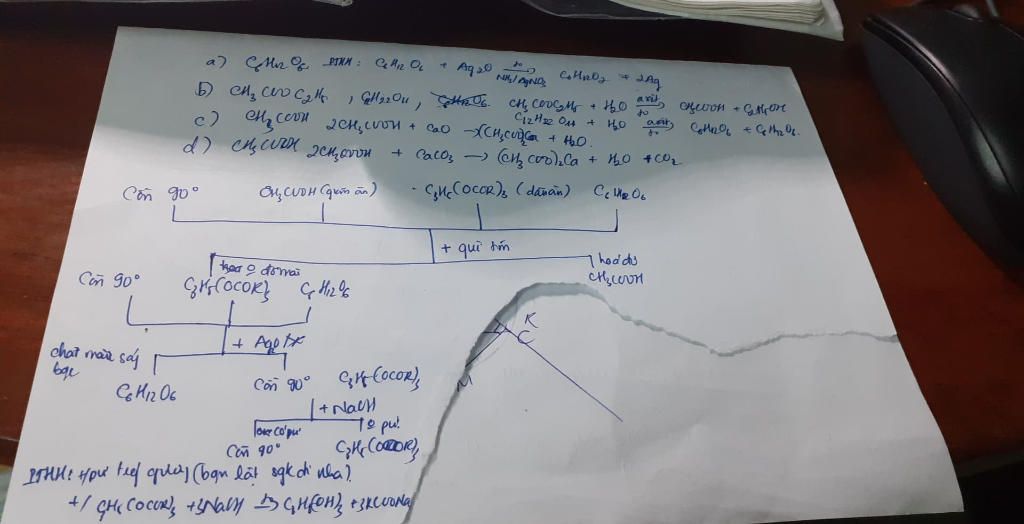 a) C6H12O6 PTHH: C6H12O6 + Ag2O t° NH3/AgNO3 C6H12O7 + 2Ag
b) CH3COOC2H5, C12H22O11, C6H12O6 CH3COOC2H5 + H2O axit t° CH3COOH + C2H5OH
C12H22O11 + H2O axit t° C6H12O6 + C6H12O6.
c) CH3COOH 2CH3COOH + CaO → (CH3COO)2Ca + H2O.
d) CH3COOH 2CH3COOH + CaCO3 → (CH3COO)2Ca + H2O + CO2
Cồn 90° CH3COOH (giấm ăn) C3H5(OCOR)3 (dầu ăn) C6H12O6
+ quì tím
hóa đỏ
CH3COOH
Cồn 90° C3H5(OCOR)3 C6H12O6
+ Ag2O
chất màu
bạc
C6H12O6
Cồn 90° C3H5(OCOR)3
+ NaOH
có pư
Cồn 90° C3H5(OCOR)3
K
C
M
PTHH: (bạn sgk đi nha)
+/ C3H5(OCOR)3 + 3NaOH t° C3H5(OH)3 + 3RCOONa